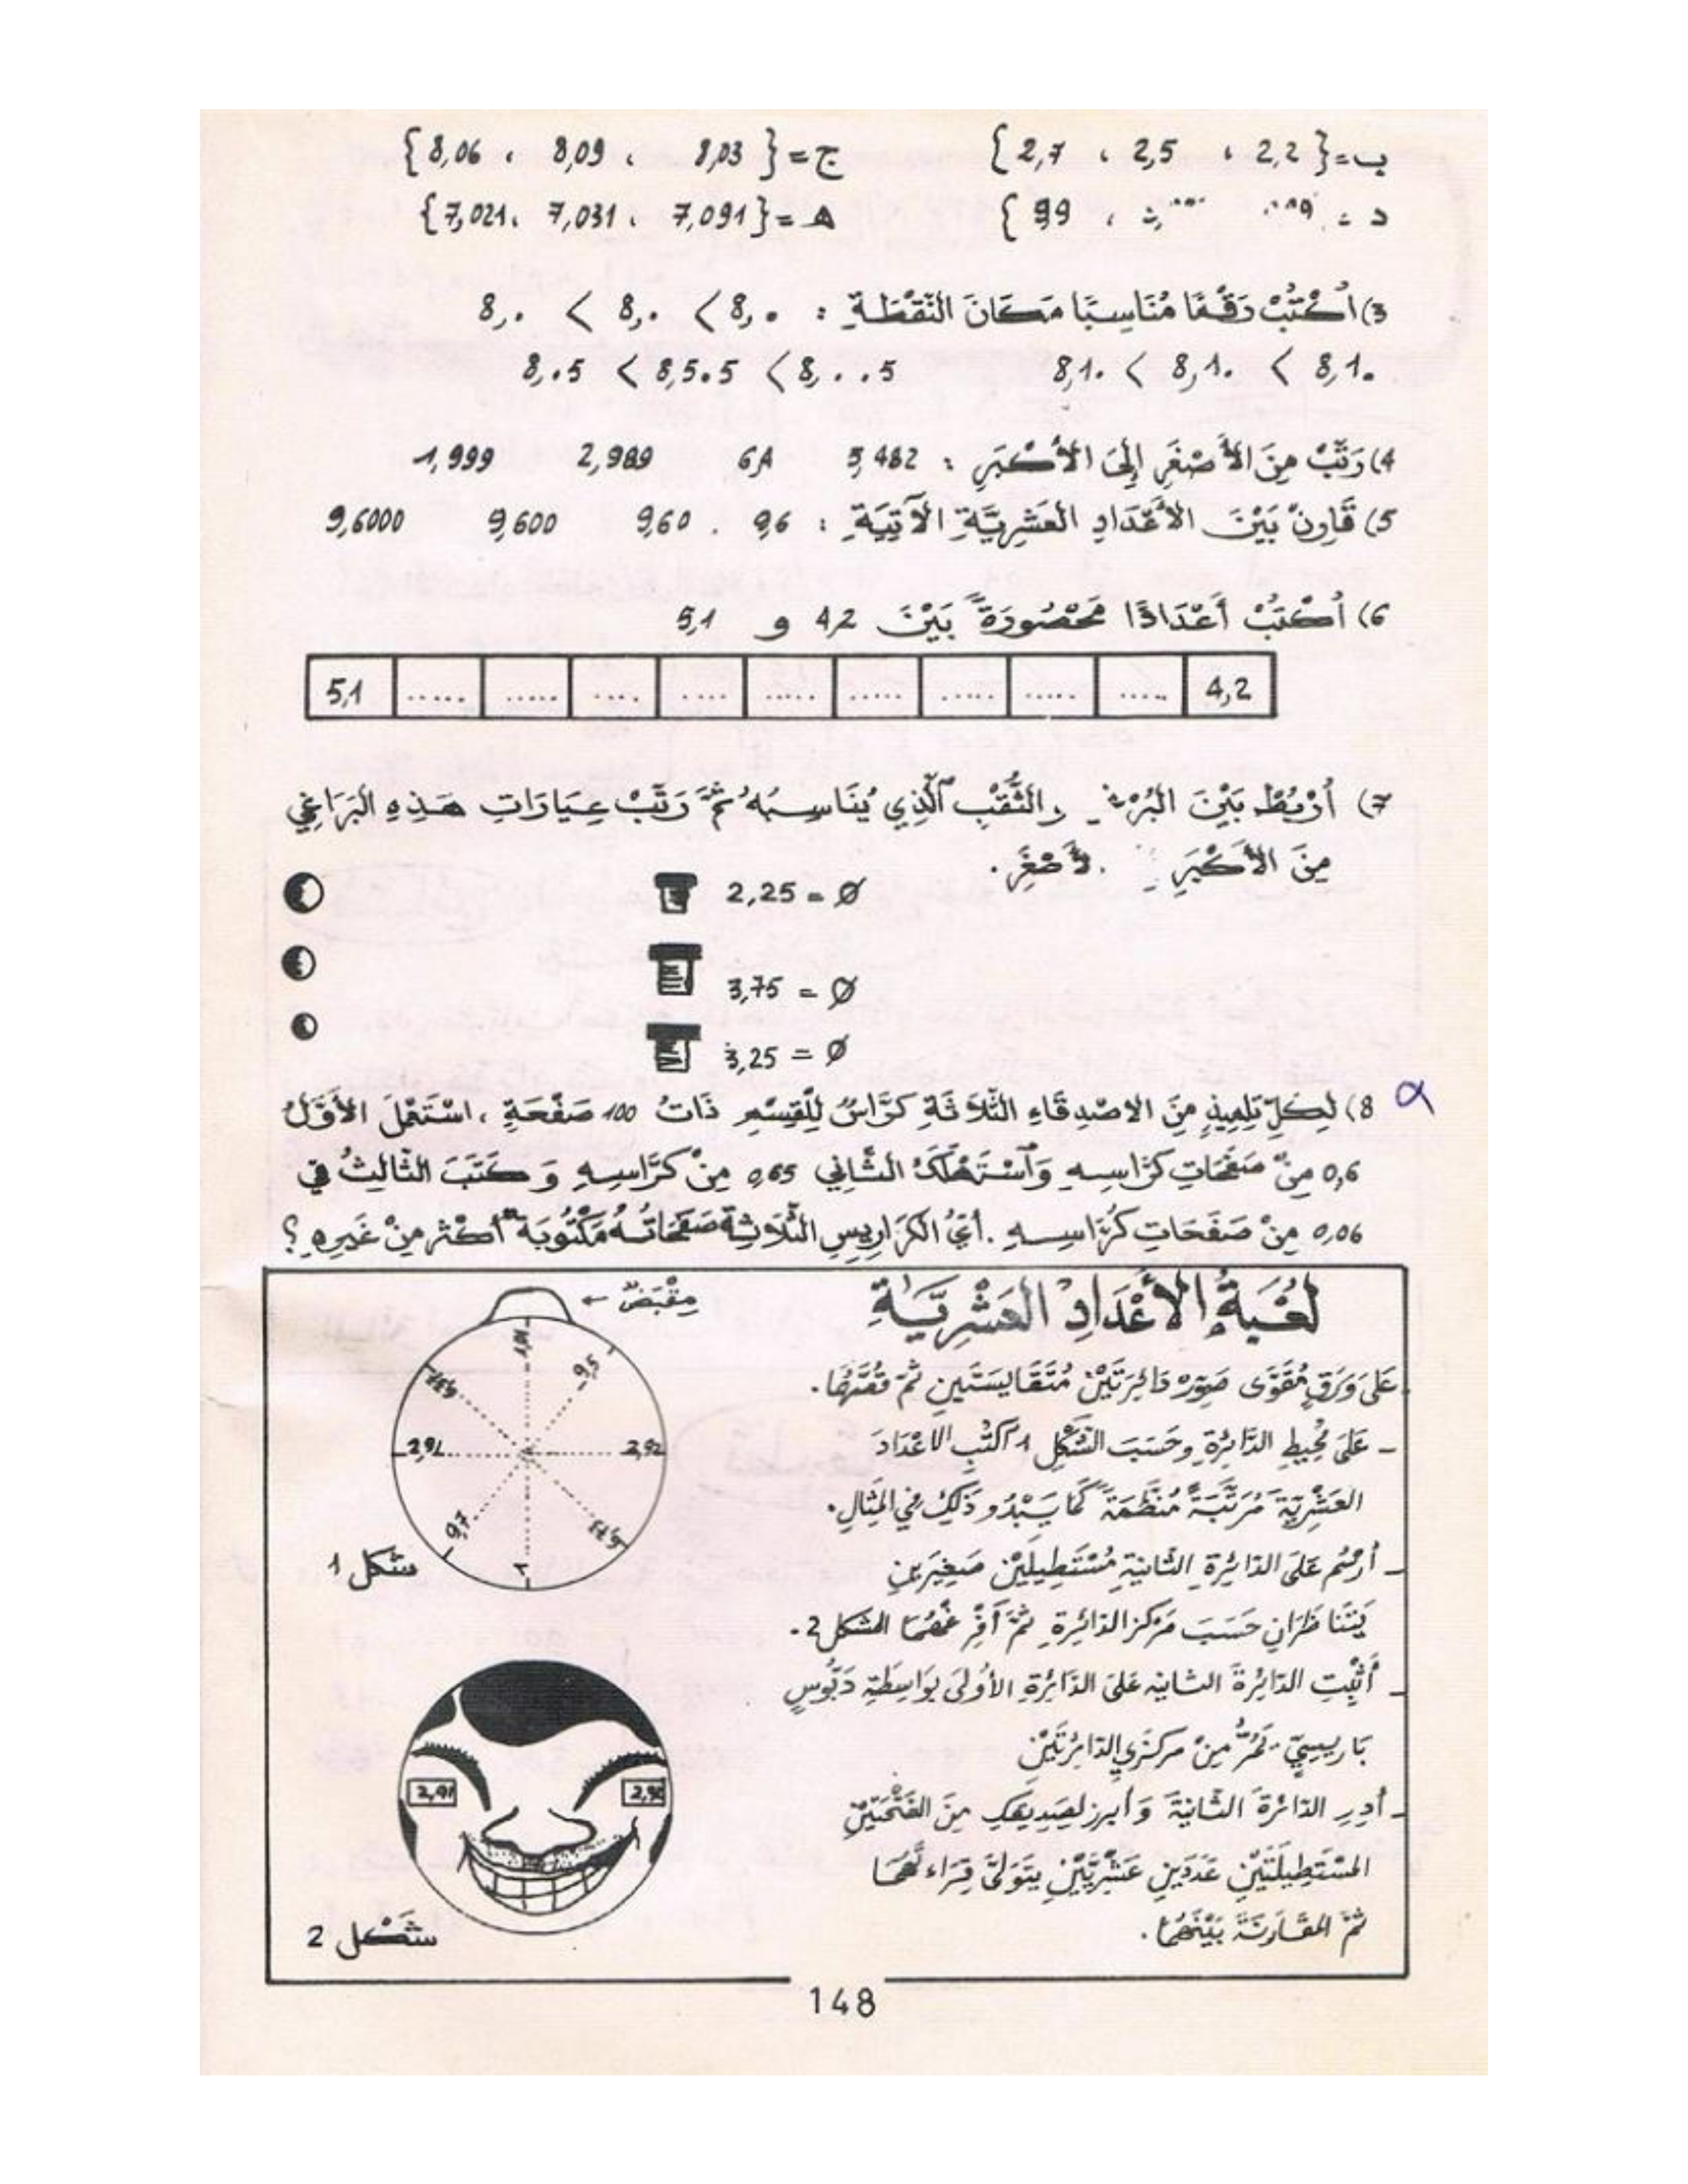 ب={2,2 ، 2,5 ، 2,7}
ج={8,03 ، 8,09 ، 8,06}
د = ، 9,9}
هـ={7,091 ، 7,031 ، 7,021}
3) اُكْتُبْ رَقْمًا مُنَاسِبًا مَكَانَ النُّقْطَةِ : 8,. < 8,. < 8,.
8,1. < 8,1. < 8,1.
8,.5 < 8,5.5 < 8,..5
4) رَتِّبْ مِنَ الأَصْغَرِ إِلَى الأَكْبَرِ : 5,482 6,1 2,989 1,999
5) قَارِنْ بَيْنَ الأَعْدَادِ العَشْرِيَّةِ الآتِيَةِ : 9,6 9,60 9,600 9,6000
6) اُكْتُبْ أَعْدَادًا مَحْصُورَةً بَيْنَ 4,2 و 5,1
4,2 ..... ..... ..... ..... ..... .... .... ..... ..... 5,1
7) اُرْبُطْ بَيْنَ وَالثُّقْبِ الَّذِي يُنَاسِبُهُ ثُمَّ رَتِّبْ عِيَارَاتِ هَذِهِ البَرَاغِي
مِنَ الأَكْبَرِ لأَصْغَرِ.
2,25 = Ø
3,75 = Ø
3,25 = Ø
8) لِكُلِّ تِلْمِيذٍ مِنَ الاصْدِقَاءِ الثَّلاَثَةِ كَرَّاسٌ لِلْقِسْمِ ذَاتُ 100 صَفْحَةٍ ، اسْتَعْمَلَ الأَوَّلُ
0,6 مِنْ صَفَحَاتِ كَرَّاسِهِ وَاَسْتَهْلَكَ الثَّانِي 0,65 مِنْ كَرَّاسِهِ وَكَتَبَ الثَّالِثُ فِي
0,06 مِنْ صَفَحَاتِ كَرَّاسِهِ . أَيُّ الكَرَارِيسِ الثَّلاَثَةِ صَفَحَاتُهُ مَكْتُوبَةٌ أَكْثَر مِنْ غَيْرِهِ ؟
لُعْبَةُ الأَعْدَادِ العَشْرِيَّةِ
عَلَى وَرَقٍ مُقَوًّى صَوِّرْ دَائِرَتَيْنِ مُتَقَايِسَتَيْنِ ثُمَّ قُصَّهُمَا.
- عَلَى مُحِيطِ الدَّائِرَةِ وحَسَبَ الشَّكْلِ 1 اُكْتُبِ الاعْدَادَ
العَشْرِيَّةَ مُرَتَّبَةً مُنَظَّمَةً كَمَا يَبْدُو ذَلِكَ فِي المِثَالِ.
- اُرْسُمْ عَلَى الدَّائِرَةِ الثَّانِيَةِ مُسْتَطِيلَيْنِ صَغِيرَيْنِ
يَتَنَاظَرَانِ حَسَبَ مَرْكَزِ الدَّائِرَةِ ثُمَّ الشكل 2.
- أَثْبِتِ الدَّائِرَةَ الثانية عَلَى الدَّائِرَةِ الأُولَى بِوَاسِطَةِ دَبُّوسٍ
بَارِيسِيٍّ يَمُرُّ مِنْ مركزيِ الدَائِرَتَيْنِ
- أَدِرِ الدَّائِرَةَ الثَّانِيَةَ وَأَبرز لِصَدِيقِكَ مِنَ الفَتْحَتَيْنِ
المُسْتَطِيلَتَيْنِ عَدَدَيْنِ عَشْرِيَّيْنِ يَتَوَلَّى قِرَاءَتَهُمَا
ثُمَّ المُقَارَنَةَ بَيْنَهُمَا.
مِقْبَضٌ
9,5
2,92
9,7
شكل 1
2,91
شَكْل 2
148